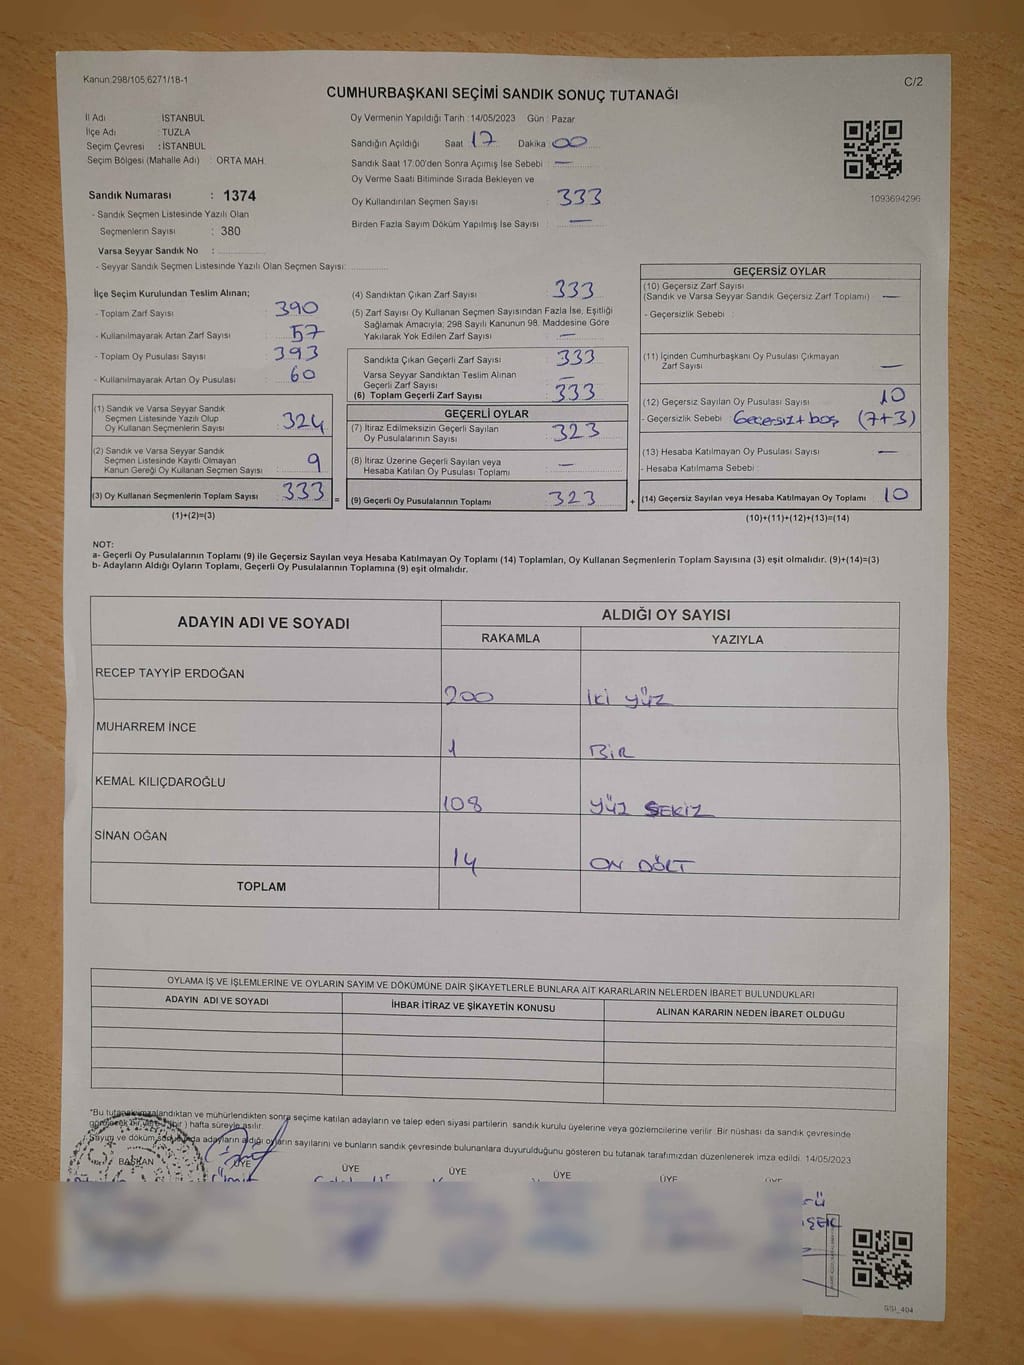 Kanun:298/105;6271/18-1
C/2
CUMHURBAŞKANI SEÇİMİ SANDIK SONUÇ TUTANAĞI
İl Adı : İSTANBUL
İlçe Adı : TUZLA
Seçim Çevresi : İSTANBUL
Seçim Bölgesi (Mahalle Adı) : ORTA MAH.
Sandık Numarası : 1374
- Sandık Seçmen Listesinde Yazılı Olan
Seçmenlerin Sayısı : 380
Varsa Seyyar Sandık No :
- Seyyar Sandık Seçmen Listesinde Yazılı Olan Seçmen Sayısı:
Oy Vermenin Yapıldığı Tarih :14/05/2023 Gün : Pazar
Sandığın Açıldığı Saat : 17 Dakika : 00
Sandık Saat 17:00'den Sonra Açımış İse Sebebi : —
Oy Verme Saati Bitiminde Sırada Bekleyen ve
Oy Kullandırılan Seçmen Sayısı : 333
Birden Fazla Sayım Döküm Yapılmış İse Sayısı : —
1093694296
İlçe Seçim Kurulundan Teslim Alınan;
- Toplam Zarf Sayısı : 390
- Kullanılmayarak Artan Zarf Sayısı : 57
- Toplam Oy Pusulası Sayısı : 393
- Kullanılmayarak Artan Oy Pusulası : 60
(1) Sandık ve Varsa Seyyar Sandık
Seçmen Listesinde Yazılı Olup
Oy Kullanan Seçmenlerin Sayısı : 324
(2) Sandık ve Varsa Seyyar Sandık
Seçmen Listesinde Kayıtlı Olmayan
Kanun Gereği Oy Kullanan Seçmen Sayısı : 9
(3) Oy Kullanan Seçmenlerin Toplam Sayısı : 333 =
(1)+(2)=(3)
(4) Sandıktan Çıkan Zarf Sayısı : 333
(5) Zarf Sayısı Oy Kullanan Seçmen Sayısından Fazla İse, Eşitliği
Sağlamak Amacıyla; 298 Sayılı Kanunun 98. Maddesine Göre
Yakılarak Yok Edilen Zarf Sayısı : —
Sandıkta Çıkan Geçerli Zarf Sayısı : 333
Varsa Seyyar Sandıktan Teslim Alınan
Geçerli Zarf Sayısı : —
(6) Toplam Geçerli Zarf Sayısı : 333
GEÇERLİ OYLAR
(7) İtiraz Edilmeksizin Geçerli Sayılan
Oy Pusulalarının Sayısı : 323
(8) İtiraz Üzerine Geçerli Sayılan veya
Hesaba Katılan Oy Pusulası Toplamı : —
(9) Geçerli Oy Pusulalarının Toplamı : 323 +
GEÇERSİZ OYLAR
(10) Geçersiz Zarf Sayısı
(Sandık ve Varsa Seyyar Sandık Geçersiz Zarf Toplamı) : —
- Geçersizlik Sebebi :
(11) İçinden Cumhurbaşkanı Oy Pusulası Çıkmayan
Zarf Sayısı : —
(12) Geçersiz Sayılan Oy Pusulası Sayısı : 10
- Geçersizlik Sebebi : Geçersiz+boş (7+3)
(13) Hesaba Katılmayan Oy Pusulası Sayısı : —
- Hesaba Katılmama Sebebi :
(14) Geçersiz Sayılan veya Hesaba Katılmayan Oy Toplamı : 10
(10)+(11)+(12)+(13)=(14)
NOT:
a- Geçerli Oy Pusulalarının Toplamı (9) ile Geçersiz Sayılan veya Hesaba Katılmayan Oy Toplamı (14) Toplamları, Oy Kullanan Seçmenlerin Toplam Sayısına (3) eşit olmalıdır. (9)+(14)=(3)
b- Adayların Aldığı Oyların Toplamı, Geçerli Oy Pusulalarının Toplamına (9) eşit olmalıdır.
ADAYIN ADI VE SOYADI
ALDIĞI OY SAYISI
RAKAMLA YAZIYLA
RECEP TAYYİP ERDOĞAN 200 İki yüz
MUHARREM İNCE 1 BİR
KEMAL KILIÇDAROĞLU 108 YÜZ SEKİZ
SİNAN OĞAN 14 ON DÖRT
TOPLAM
OYLAMA İŞ VE İŞLEMLERİNE VE OYLARIN SAYIM VE DÖKÜMÜNE DAİR ŞİKAYETLERLE BUNLARA AİT KARARLARIN NELERDEN İBARET BULUNDUKLARI
ADAYIN ADI VE SOYADI
İHBAR İTİRAZ VE ŞİKAYETİN KONUSU
ALINAN KARARIN NEDEN İBARET OLDUĞU
"Bu tutanak imzalandıktan ve mühürlendikten sonra seçime katılan adayların ve talep eden siyasi partilerin sandık kurulu üyelerine veya gözlemcilerine verilir. Bir nüshası da sandık çevresinde
bir ) hafta süreyle asılır.
Sayım ve döküm adayların aldığı oyların sayılarını ve bunların sandık çevresinde bulunanlara duyurulduğunu gösteren bu tutanak tarafımızdan düzenlenerek imza edildi. 14/05/2023
BAŞKAN ÜYE ÜYE ÜYE ÜYE ÜYE
GSI_404